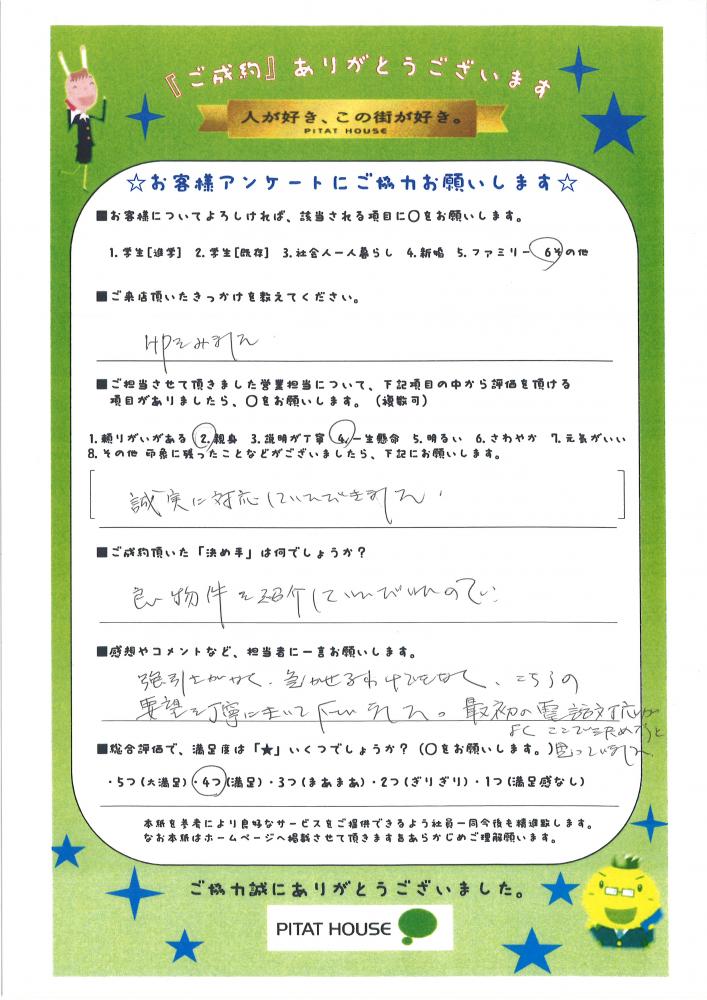 『ご成約』ありがとうございます
人が好き、この街が好き。
PITAT HOUSE
☆お客様アンケートにご協力お願いします☆
■お客様についてよろしければ、該当される項目に○をお願いします。
1.学生[進学] 2.学生[既存] 3.社会人一人暮らし 4.新婚 5.ファミリー 6その他
■ご来店頂いたきっかけを教えてください。
HPをみました
■ご担当させて頂きました営業担当について、下記項目の中から評価を頂ける
項目がありましたら、○をお願いします。（複数可）
1.頼りがいがある 2.親身 3.説明が丁寧 4.一生懸命 5.明るい 6.さわやか 7.元気がいい
8.その他 印象に残ったことなどがございましたら、下記にお願いします。
誠実に対応していただきました。
■ご成約頂いた「決め手」は何でしょうか？
良い物件を紹介していただいたので
■感想やコメントなど、担当者に一言お願いします。
強引さがなく、急かせるわけでもなく、こちらの
要望を丁寧に聞いて下さいました。最初の電話対応が
よく ここで決めようと
■総合評価で、満足度は「★」いくつでしょうか？（○をお願いします。）思っていました
・5つ(大満足)・4つ(満足)・3つ(まあまあ)・2つ(ぎりぎり)・1つ(満足感なし)
本紙を参考により良好なサービスをご提供できるよう社員一同今後も精進致します。
なお本紙はホームページへ掲載させて頂きます旨あらかじめご理解願います。
ご協力誠にありがとうございました。
PITAT HOUSE